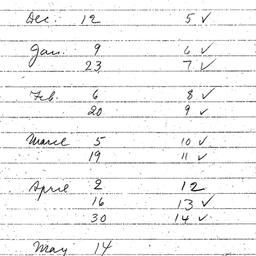 Dec. 12 5 ✓
Jan. 9 6 ✓
23 7 ✓
Feb. 6 8 ✓
20 9 ✓
March 5 10 ✓
19 11 ✓
April 2 12
16 13 ✓
30 14 ✓
May 14